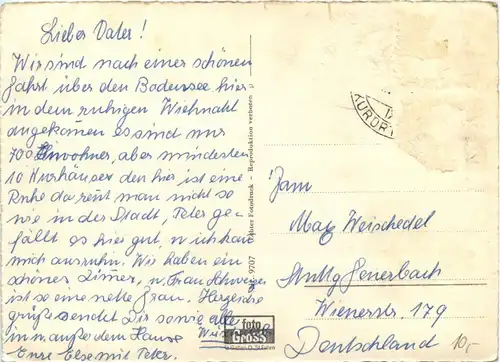 Lieber Vater!
Wir sind nach einer schönen
Fahrt über den Bodensee hier
in dem ruhigen
angekommen es sind nur
700 Einwohner, aber mindesten
10 Kurhäuser denn hier ist eine
Ruhe da rent man nicht so
wie in der Stadt, Peter ge-
fällt es hier gut, u ich kann
mich ausruhn. Wir haben ein
schönes Zimmer, u. Frau Schweizer
ist so eine nette Frau. Herzliche
grüße sendet Dir sowie alle
in u. außer dem Hause
Eure Else mit Peter.
9707 Fotodruck - Reproduktion verboten
foto
GROSS
KURORT
Max Weischedel
Stuttg Feuerbach
Wienerstr. 179
Deutschland
10,-